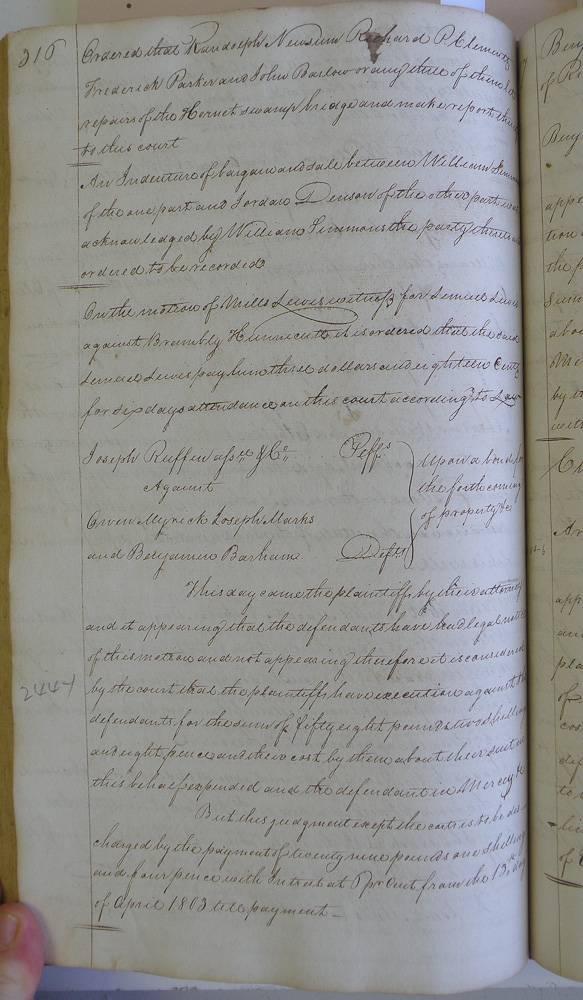 316
Ordered that Randolph Newsum Richard P. Clements
Frederick Parker and John Barlow or any three of them
repairs of the Hornet swamp bridge and make report
to this court
An Indenture of bargain and sale between William
of the one part and Jordan Denson of the other part was
acknowledged by William Simmons the party thereto
ordered to be recorded
On the motion of Mills Lewis witness for Lemuel Lewis
against Brambly Hunnicutt it is ordered that the said
Lemuel Lewis pay him three dollars and eighteen Cents
for six days attendance on this court according to Law
Joseph Ruffin assee &Co. Peffs
Against
Owen Myrick Joseph Marks
and Benjamin Barham Defts
Upon a bond for
the forthcoming
of property &c
This day came the plaintiffs by their attorney
and it appearing that the defendants have had legal notice
of this motion and not appearing therefore it is considered
by the court that the plaintiffs have execution against the
defendants for the sum of fifty eight pounds two shillings
and eight pence and their cost by them about their suit in
this behalf expended and the defendant in Mercy &c
But this judgment except the costs is to be dis
charged by the payment of twenty nine pounds one shilling
and four pence with Interest at 5 pr Cent from the 13th day
of April 1803 till payment
2444